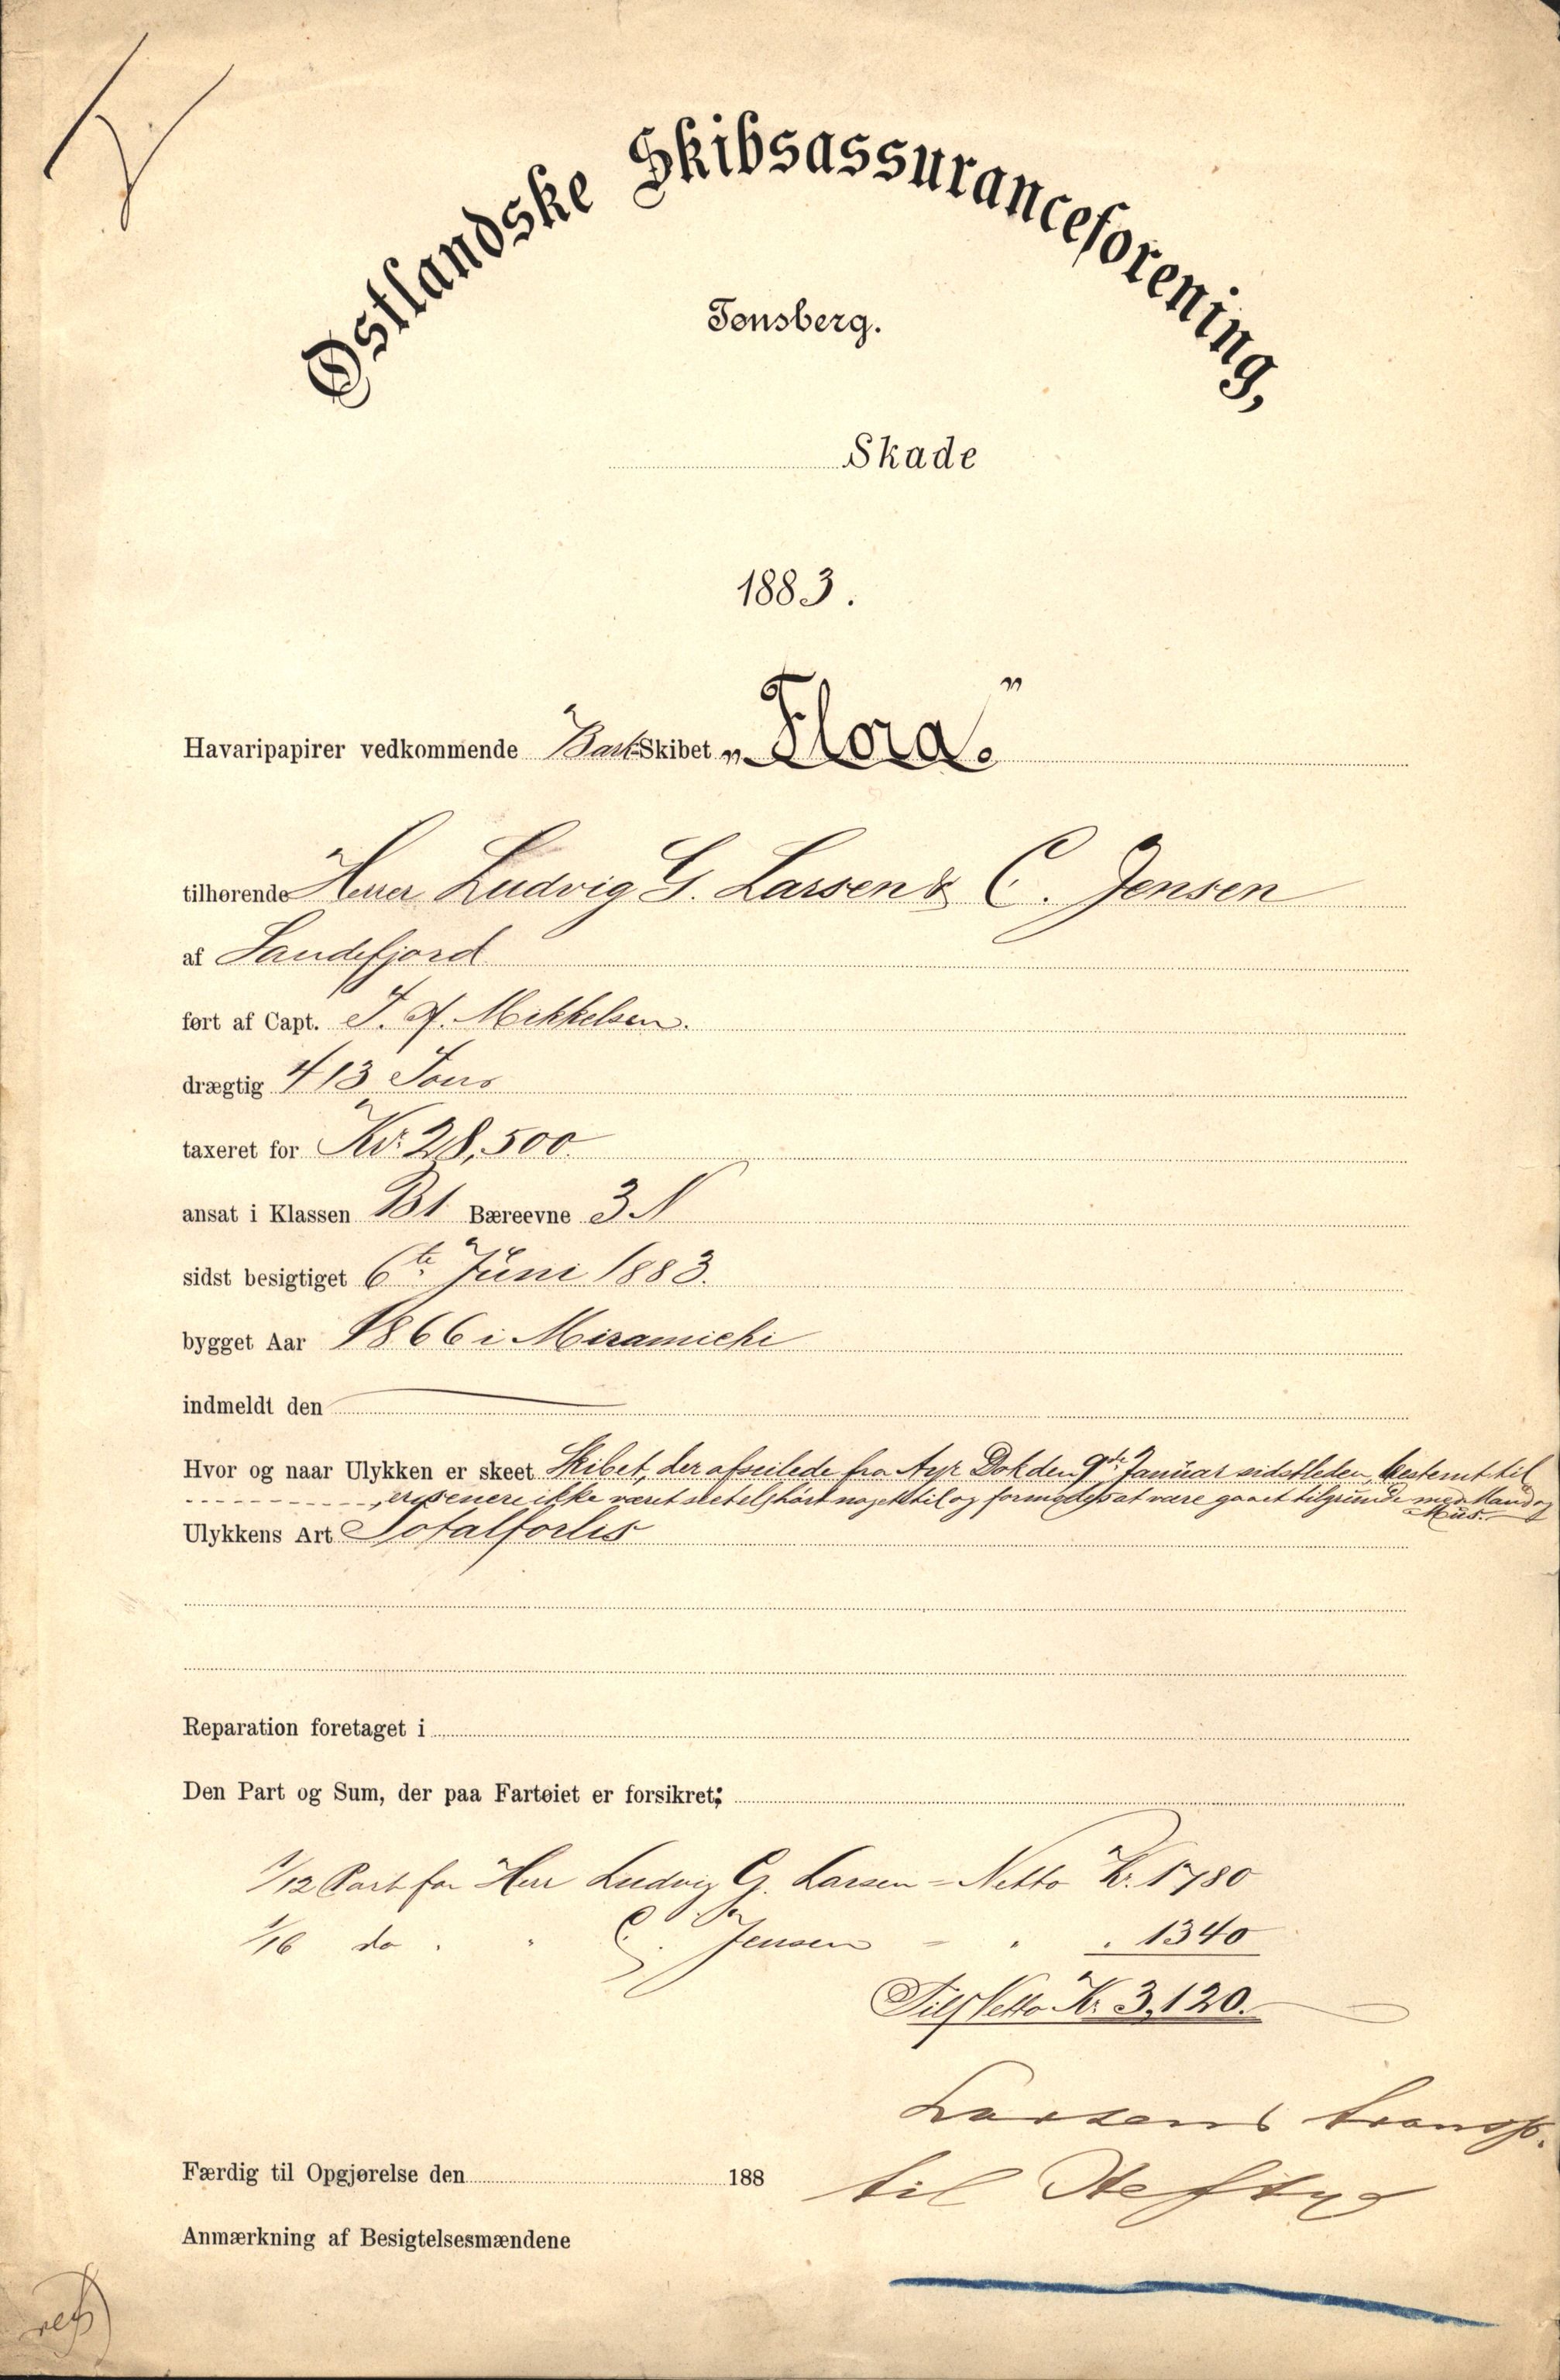 Østlandske Skibsassuranceforening,
Tønsberg.
Skade
1883.
Havaripapirer vedkommende Bark-Skibet „Flora"
tilhørende Herrer Ludvig G. Larsen & C. Jensen
af Sandefjord
ført af Capt. J. A. Mikkelsen.
drægtig 413 Tons
taxeret for Kr. 28,500.
ansat i Klassen B1 Bæreevne 3 N
sidst besigtiget 6te Juni 1883.
bygget Aar 1866 i Miramichi
indmeldt den
Hvor og naar Ulykken er skeet Skibet, der afseilede fra Ayr Dok den 9de Januar sidstleden, bestemt til
----------, er senere ikke været seet el. hørt noget til og formodes at være gaaet tilgrunde med Mand og
Mus.
Ulykkens Art Totalforlis
Reparation foretaget i
Den Part og Sum, der paa Fartøiet er forsikret;
1/12 Part for Herr Ludvig G. Larsen = Netto Kr. 1780
1/16 do " " C. Jensen = " " 1340
Tils. Netto Kr. 3,120.
Larsens transp.
til Heftye
Færdig til Opgjørelse den 188
Anmærkning af Besigtelsesmændene